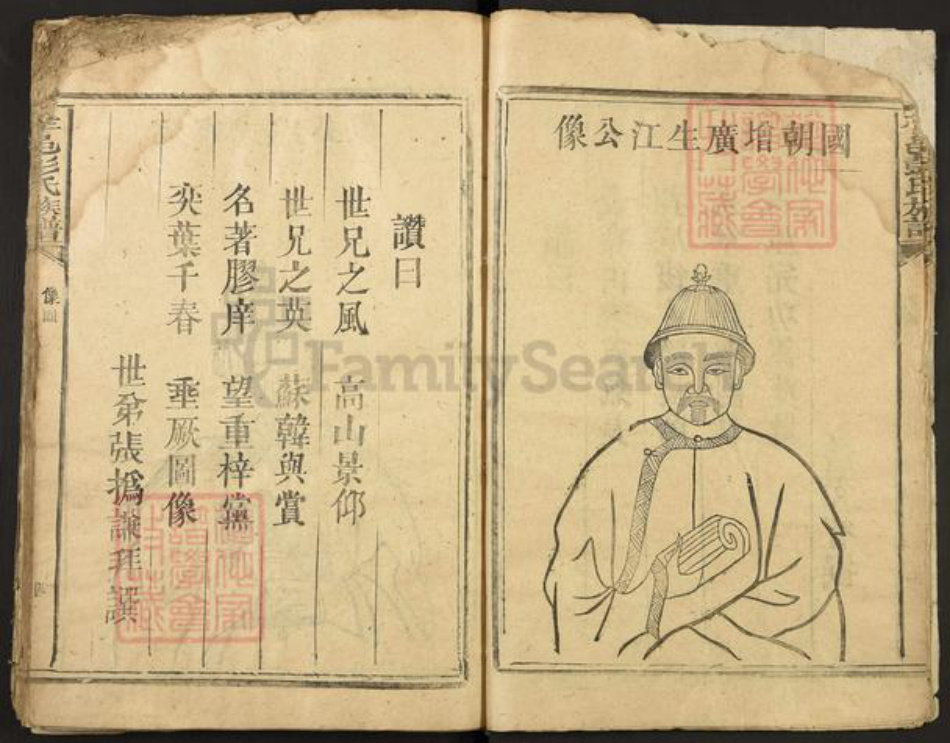 國朝增廣生江公像
讚曰
世兄之風　高山景仰
世兄之英　蘇韓與賞
名著膠庠　望重梓黨
奕葉千春　垂厥圖像
世弟張撝謙拜譔
邑彭氏族譜
像圖
FamilySearch